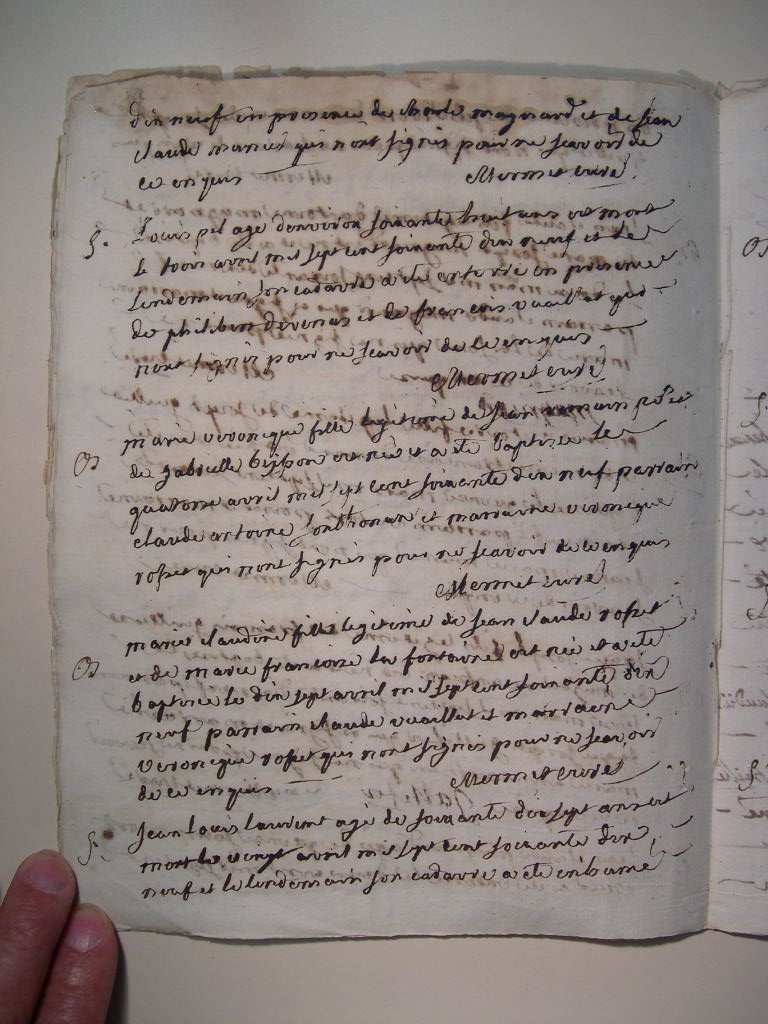 dix neuf en presence de magnard et de jean
claude manier qui nont signés pour ne scavoir de
ce enquis Mermet curé
S. Louis age denviron soixante huit ans est mort
le trois avril mil sept cent soixante dix neuf et le
lendemain son cadavre a ete enterré en presence
de philibin et de francois vuaill et qui
nont signér pour ne scavoir de ce enquis
Mermet curé
B marie veronique fille legitime de jean romain et
de gabrielle est née et a ete baptisée le
quatorse avril mil sept cent soixante dix neuf parrain
claude antoine et marraine veronique
rosset qui nont signés pour ne scavoir de ce enquis
Mermet curé
B marie claudine fille legitime de jean claude rosset
et de marie francoise la fontaine est née et a ete
baptisée le dix sept avril mil sept cent soixante dix
neuf parrain claude vuaillet et marraene
veronique rosset qui nont signés pour ne scavoir
de ce enquis Mermet curé
S. jean louis laurent agé de soixante dix sept ans est
mort le vingt avril mil sept cent soixante dix
neuf et le lendemain son cadavre a ete inhumé